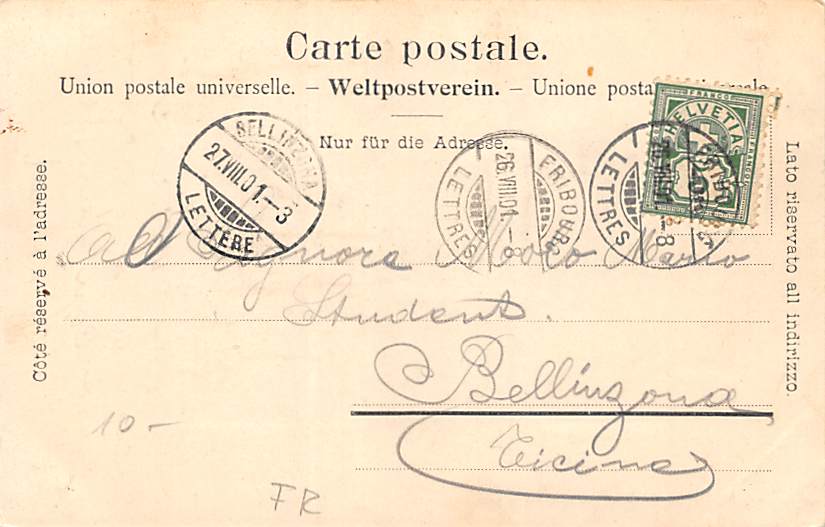 Carte postale.
Union postale universelle. – Weltpostverein. – Unione postale universale
Nur für die Adresse.
Côté réservé à l'adresse.
Lato riservato all indirizzo.
BELLINZONA
27.VIII.01.–3
LETTERE
FRIBOURG
26.VIII.01.–8
LETTRES
FRIBOURG
26.VIII.01.–8
LETTRES
FRANCO
HELVETIA
FRANCO
Al Signora Moro Mario
Student.
Bellinzona
Ticino
10 –
FR